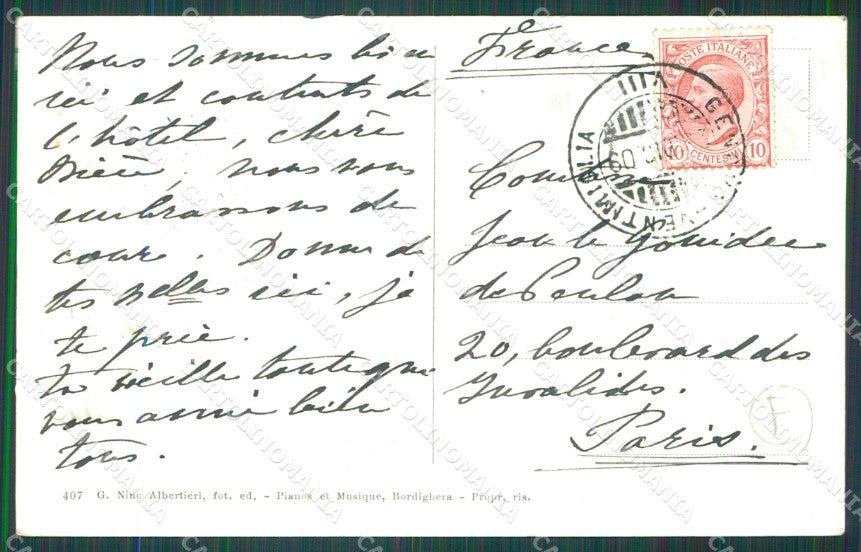 Nous sommes bien
ici et contents de
l'hôtel, chère
nous vous
embrassons de
coeur. Donne de
tes nelles ici, je
te prie.
ta vieille tante qui
vous aime bien
tous.
France
POSTE ITALIANE
10 CENTESIMI 10
GENOVA VENTIMIGLIA
Comtesse
Jean le Gonidec
de Penlan
20, boulevard des
Invalides.
Paris.
F
407 G. Nino Albertieri, fot. ed. - Pianos et Musique, Bordighera - Propr. ris.
CARTOLINOMANIA